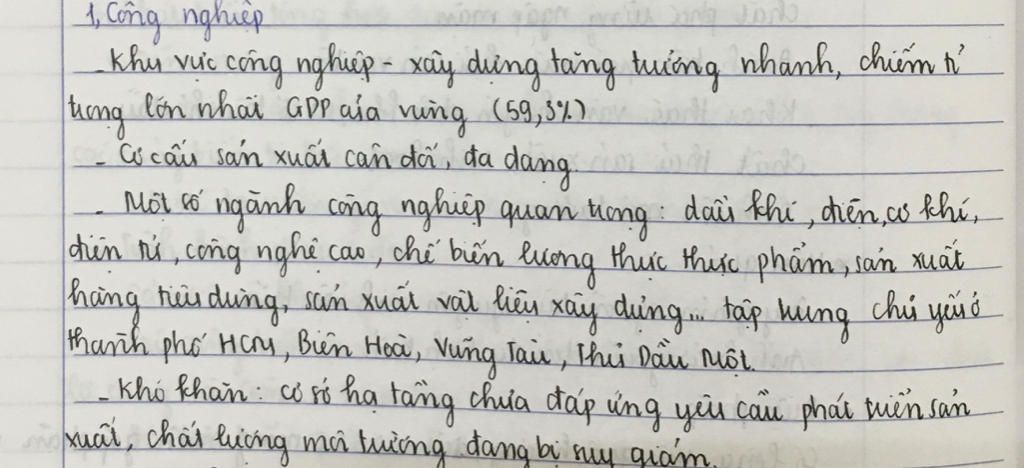 1, Công nghiệp
- Khu vực công nghiệp - xây dựng tăng trưởng nhanh, chiếm tỉ
trọng lớn nhất GDP của vùng (59,3%)
- Cơ cấu sản xuất cân đối, đa dạng.
- Một số ngành công nghiệp quan trọng: dầu khí, điện, cơ khí,
điện tử, công nghệ cao, chế biến lương thực thực phẩm, sản xuất
hàng tiêu dùng, sản xuất vật liệu xây dựng... tập trung chủ yếu ở
thành phố HCM, Biên Hoà, Vũng Tàu, Thủ Dầu Một.
- Khó khăn: cơ sở hạ tầng chưa đáp ứng yêu cầu phát triển sản
xuất, chất lượng môi trường đang bị suy giảm.